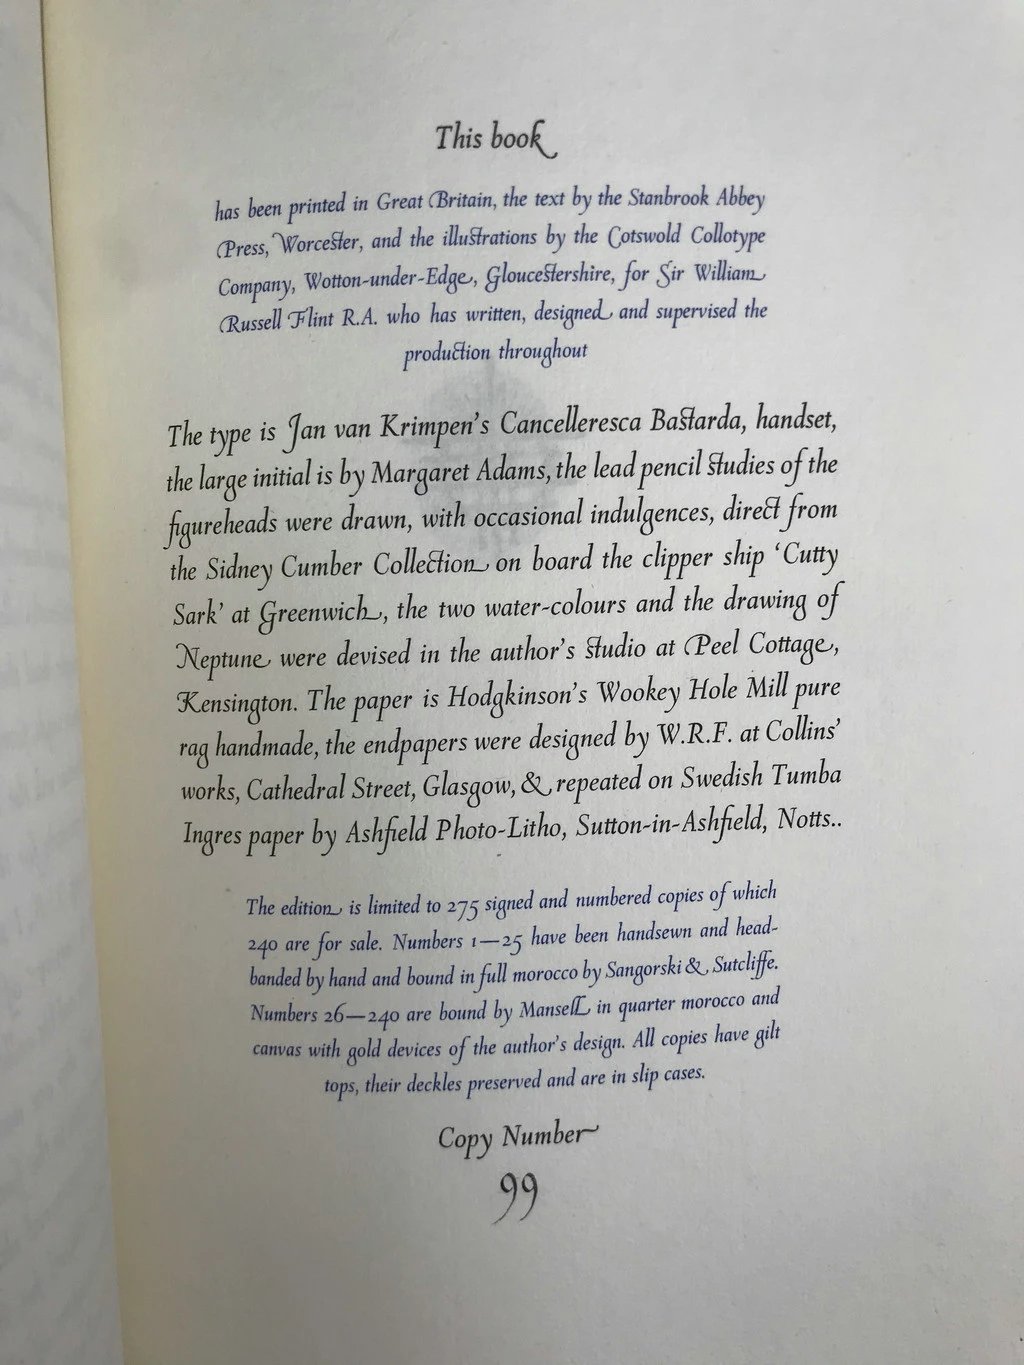 This book
has been printed in Great Britain, the text by the Stanbrook Abbey
Press, Worcester, and the illustrations by the Cotswold Collotype
Company, Wotton-under-Edge, Gloucestershire, for Sir William
Russell Flint R.A. who has written, designed and supervised the
production throughout
The type is Jan van Krimpen's Cancelleresca Bastarda, handset,
the large initial is by Margaret Adams, the lead pencil studies of the
figureheads were drawn, with occasional indulgences, direct from
the Sidney Cumber Collection on board the clipper ship 'Cutty
Sark' at Greenwich, the two water-colours and the drawing of
Neptune were devised in the author's studio at Peel Cottage,
Kensington. The paper is Hodgkinson's Wookey Hole Mill pure
rag handmade, the endpapers were designed by W.R.F. at Collins'
works, Cathedral Street, Glasgow, & repeated on Swedish Tumba
Ingres paper by Ashfield Photo-Litho, Sutton-in-Ashfield, Notts..
The edition is limited to 275 signed and numbered copies of which
240 are for sale. Numbers 1—25 have been handsewn and head-
banded by hand and bound in full morocco by Sangorski & Sutcliffe.
Numbers 26—240 are bound by Mansell in quarter morocco and
canvas with gold devices of the author's design. All copies have gilt
tops, their deckles preserved and are in slip cases.
Copy Number
99